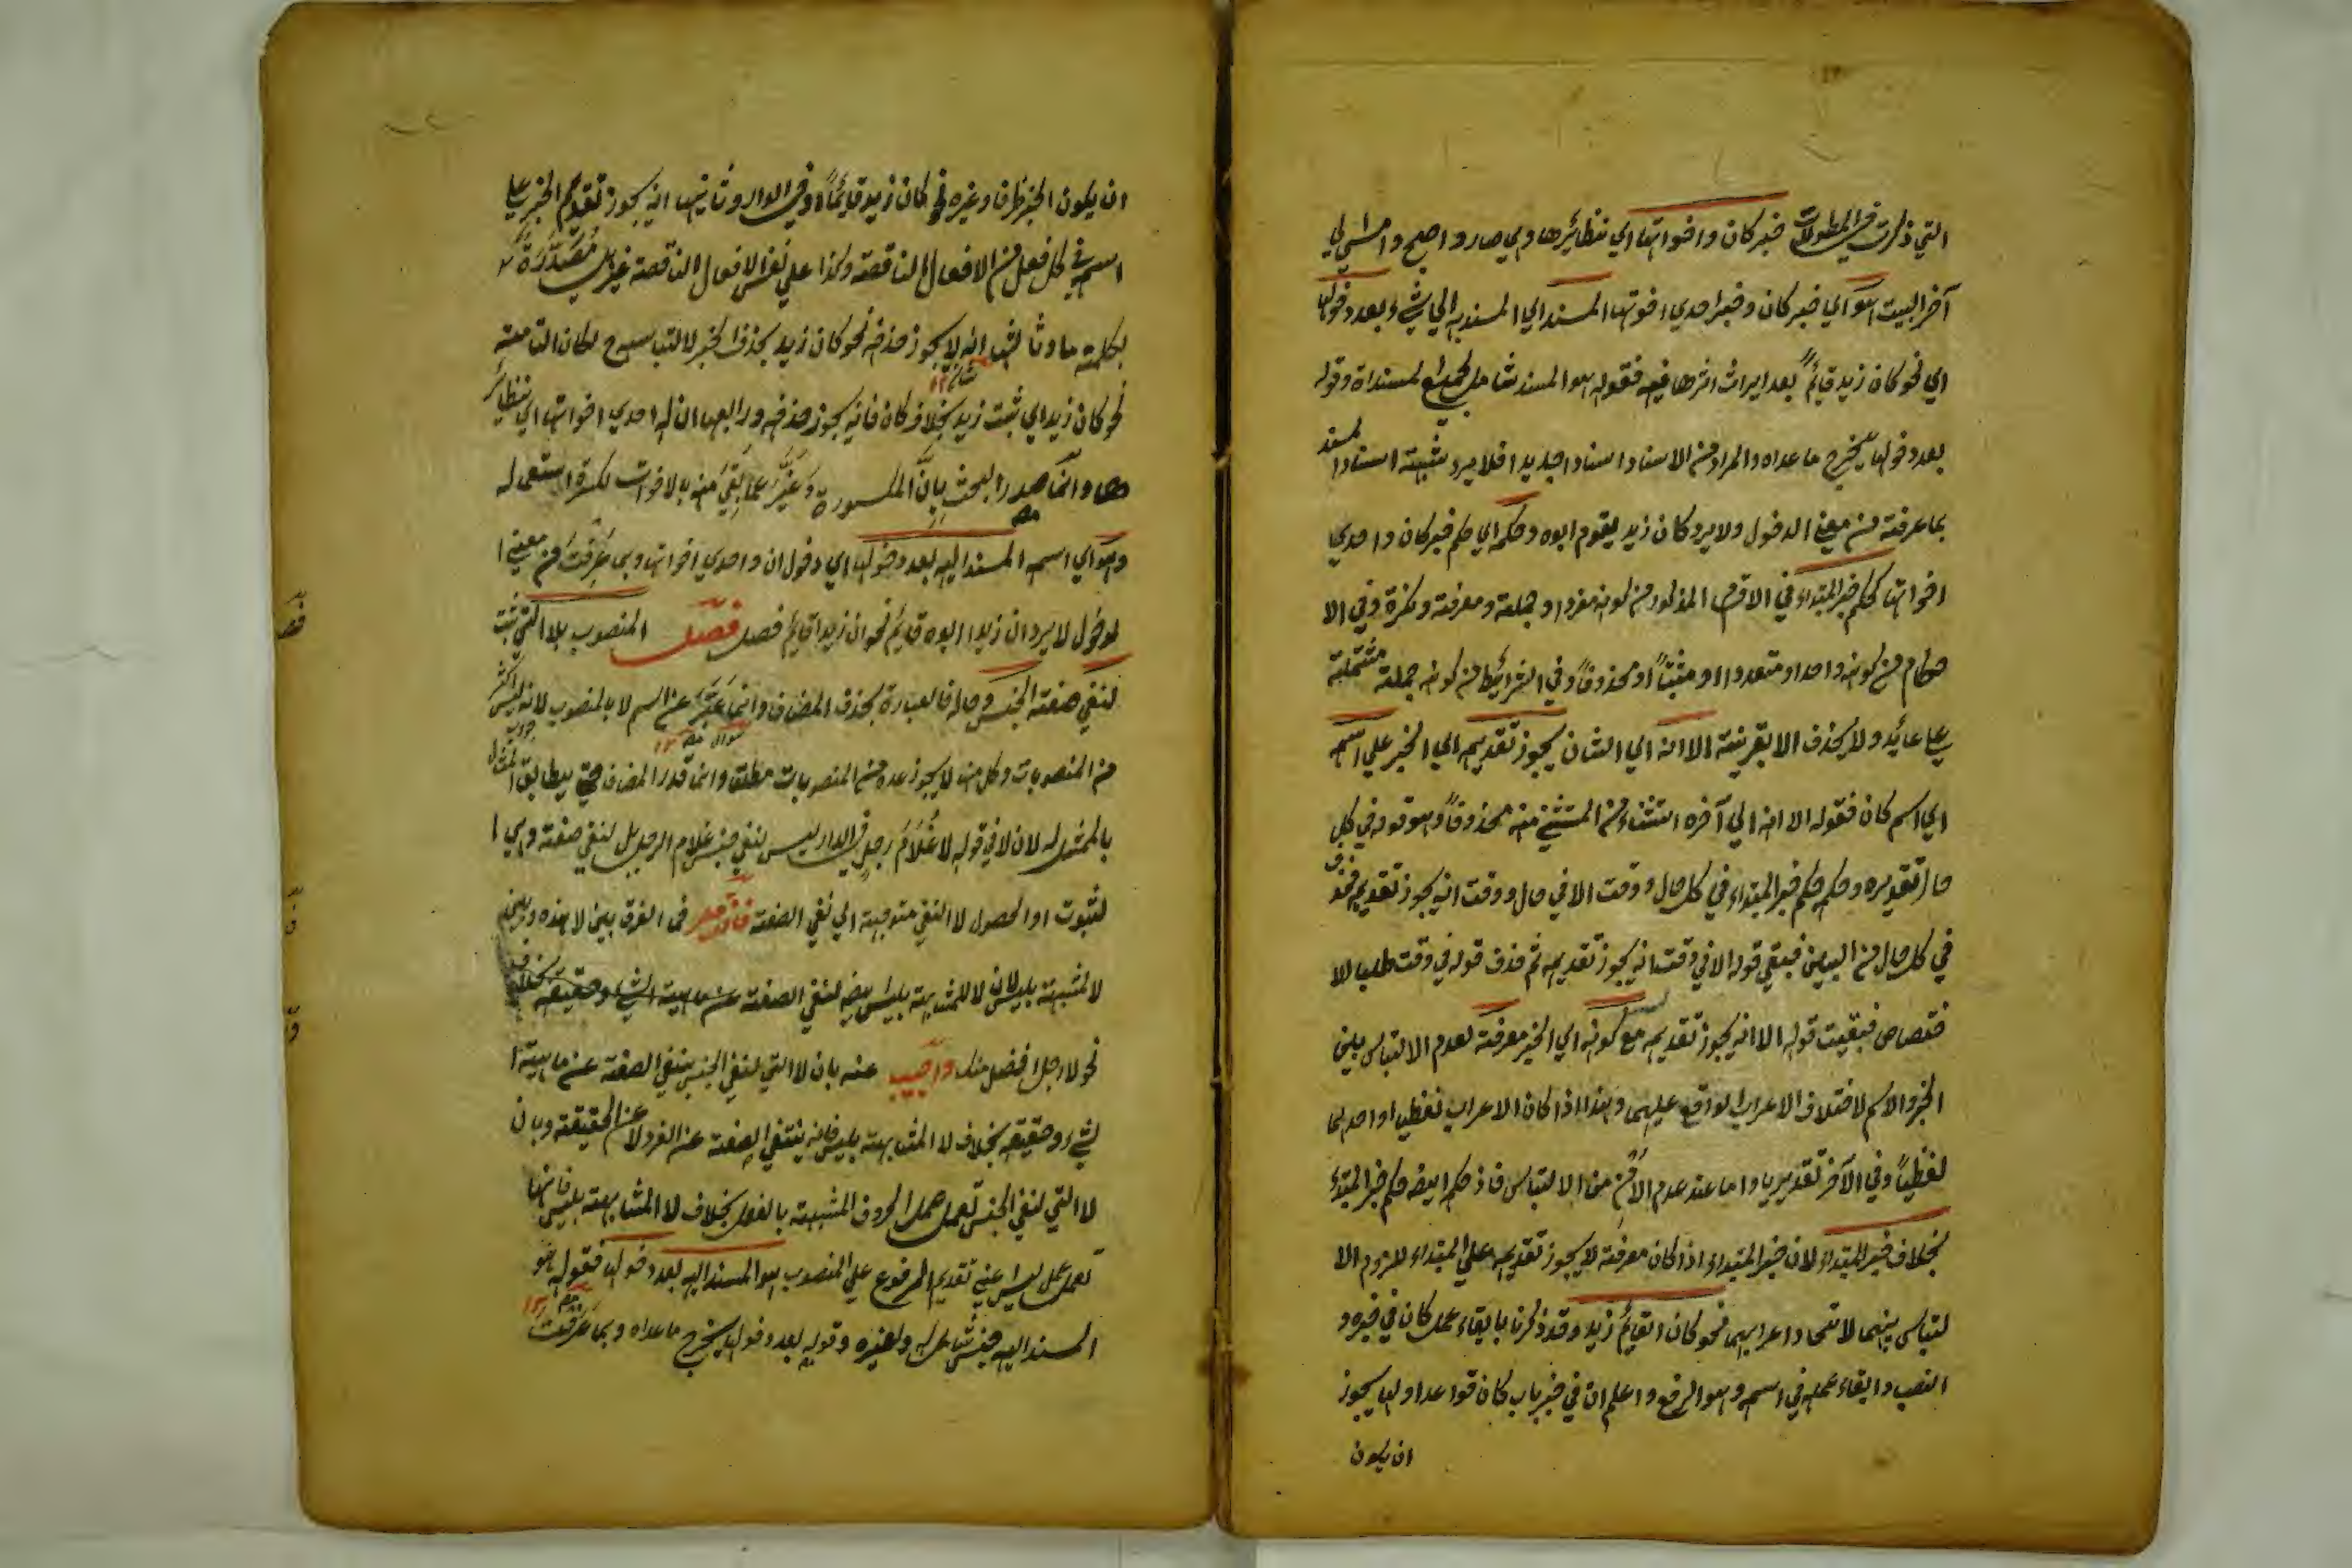 التي ذكرت في المطولات خبر كان واخواتها اي نظائرها وهي صار واصبح وامسى الى
آخر البيت هو اي خبر كان وخبر احدي اخوتها المسند اي المسند به الي شيء بعد دخولها
اي نحو كان زيد قائمًا بعد ايراث اثرها فيه فقوله هو المسند شامل لجميع لمسنداة وقوله
بعد دخولها يخرج ما عداه والمراد من الاسناد اسنادا جديدا فلا يرد شبهة اسناد المسند
بما عرفته من معني الدخول ولا يرد كان زيد يقوم ابوه وحكمه اي حكم خبر كان واحدي
اخواتها كحكم خبر المبتداء في الاقسام المذكورة من كونه مفردا وجملة ومعرفة ونكرة وفي الا
حكام من كونه واحدا ومتعددا او مثبتاً او محذوفاً وفي الشرائط من كونه جملة مشتملة
علي عائد ولا يحذف الا بقرينة الا انه اي الشان يجوز تقديمه اي الخبر علي اسمه
اي اسم كان فقوله الا انه الي آخره استثناء من المستثني منه محذوفاً وهو قوله في كل
حال تقديره وحكمه حكم خبر المبتداء في كل حال ووقت الا في حال ووقت انه يجوز تقديمه فحذف
في كل حال من البين فبقي قوله الا في وقت انه يجوز تقديمه ثم حذف قوله في وقت طلبا للا
ختصاص فبقيت قوله الا انه يجوز تقديمه مع كونه اي الخبر معرفة لعدم الالتباس بين
الخبر والاسم لاختلاف الاعراب الواقع عليهما وهذا اذا كان الاعراب لفظيا او احدهما
لفظياً وفي الآخر تقديريا واما عند عدم الأمن من الالتباس فاذ حكمه ايضه حكم خبر المبتدء
بخلاف خبر المبتداء لان خبر المبتداء اذا كان معرفة لا يجوز تقديمه علي المبتداء للزوم الا
لتباس بينهما لاتحاد اعرابهما نحو كان القائم زيد وقد ذكرنا بابقاء عمل كان في خبره و
النصب وابقاء عمله في اسمه وهو الرفع واعلم ان في خبر باب كان قواعد اولها يجوز
ان يكون
ان يكون الخبر ظرفا وغيره نحو كان زيد قائمًا او في الدار وثانيها انه يجوز تقديم الخبر علي
اسمه في كل فعل من الافعال الناقصة وكذا علي نفس الافعال الناقصة غير مُصَدَّرَةٍ
بكلمة ما وثالثها انه لا يجوز حذفه نحو كان زيد بحذف الخبر لالتباسه ح لكان التامة
نحو كان زيد اي ثبت زيد بخلاف كان فانه يجوز حذفه ورابعها ان له احدي اخواتها اي نظائر
ها وانما صدر البحث بِاِنَّ المكسورة وعَبَّرَ عما بَقِيَ منه بالاخوات لكثرة استعماله
وهو اي اسمه المسند اليه بعد دخولها اي دخول ان واحدي اخواتها وبما عَرَفْتَ من معني ا
لدخول لا يرد ان زيدا ابوه قائم نحو ان زيدا قائم فصل فصل المنصوب بلا التي ثبت
لنفي صفة الجنس وحاله فالعبارة بحذف المضاف وانما عَبَّرَ عن اسم لا بالمنصوب لانه ليس اكثر
من المنصوبات وكل منها لا يجوز عده من المنصوبات مطلقا وانما قدر المضاف حتي يطابق المثال
بالممثل له لان لا في قوله لا غُلَامَ رجلٍ في الدار ليس لنفي جنس غلام الرجل بل لنفي صفة وهي ا
لثبوت او الحصول لا النفي متوجهة الي نفي الصفة فان قيل فما الفرق بين لا هذه وبين
لا لمشبهة بليس لان لا للمشابهة بليس ايضه لنفي الصفة عن ماهية الشيء وحقيقته بخلاف
نحو لا رجل افضل منك واجيب عنه بان لا التي لنفي الجنس ينفي الصفة عن ماهية ا
لشيء وحقيقته بخلاف لا المشابهة بليس فانه ينتفي الصفة عن الفرد لا عن الحقيقة وبان
لا التي لنفي الجنس تعمل عمل الحروف المشبهة بالفعل بخلاف لا المشابهة بليس فانها
تعمل عمل ليس اعني تقديم المرفوع علي المنصوب هو المسند اليه بعد دخولها فقوله هو
المسند اليه جنس شامل له ولغيره وقوله بعد دخولها يخرج ما عداه وبما عَرَفْتَ